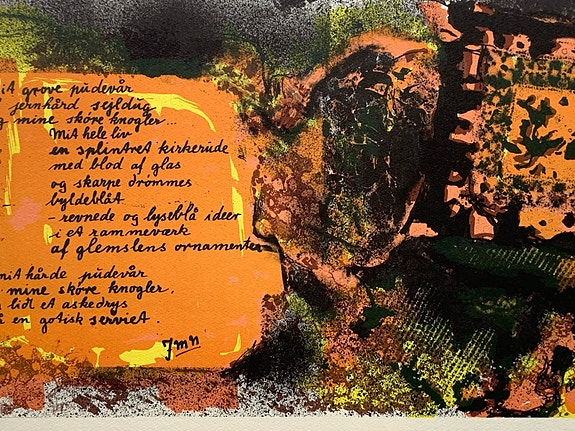 grove pudevår
jernhård sejldug
mine skøre knogler...
Mit hele liv
en splintret kirkerude
med blod af glas
og skarpe drømmes
byldeblåt
- revnede og lyseblå ideer
i et rammeværk
af glemslens ornamenter
mit hårde pudevår
mine skøre knogler.
lidt et askedrys
en gotisk serviet.
Jmn